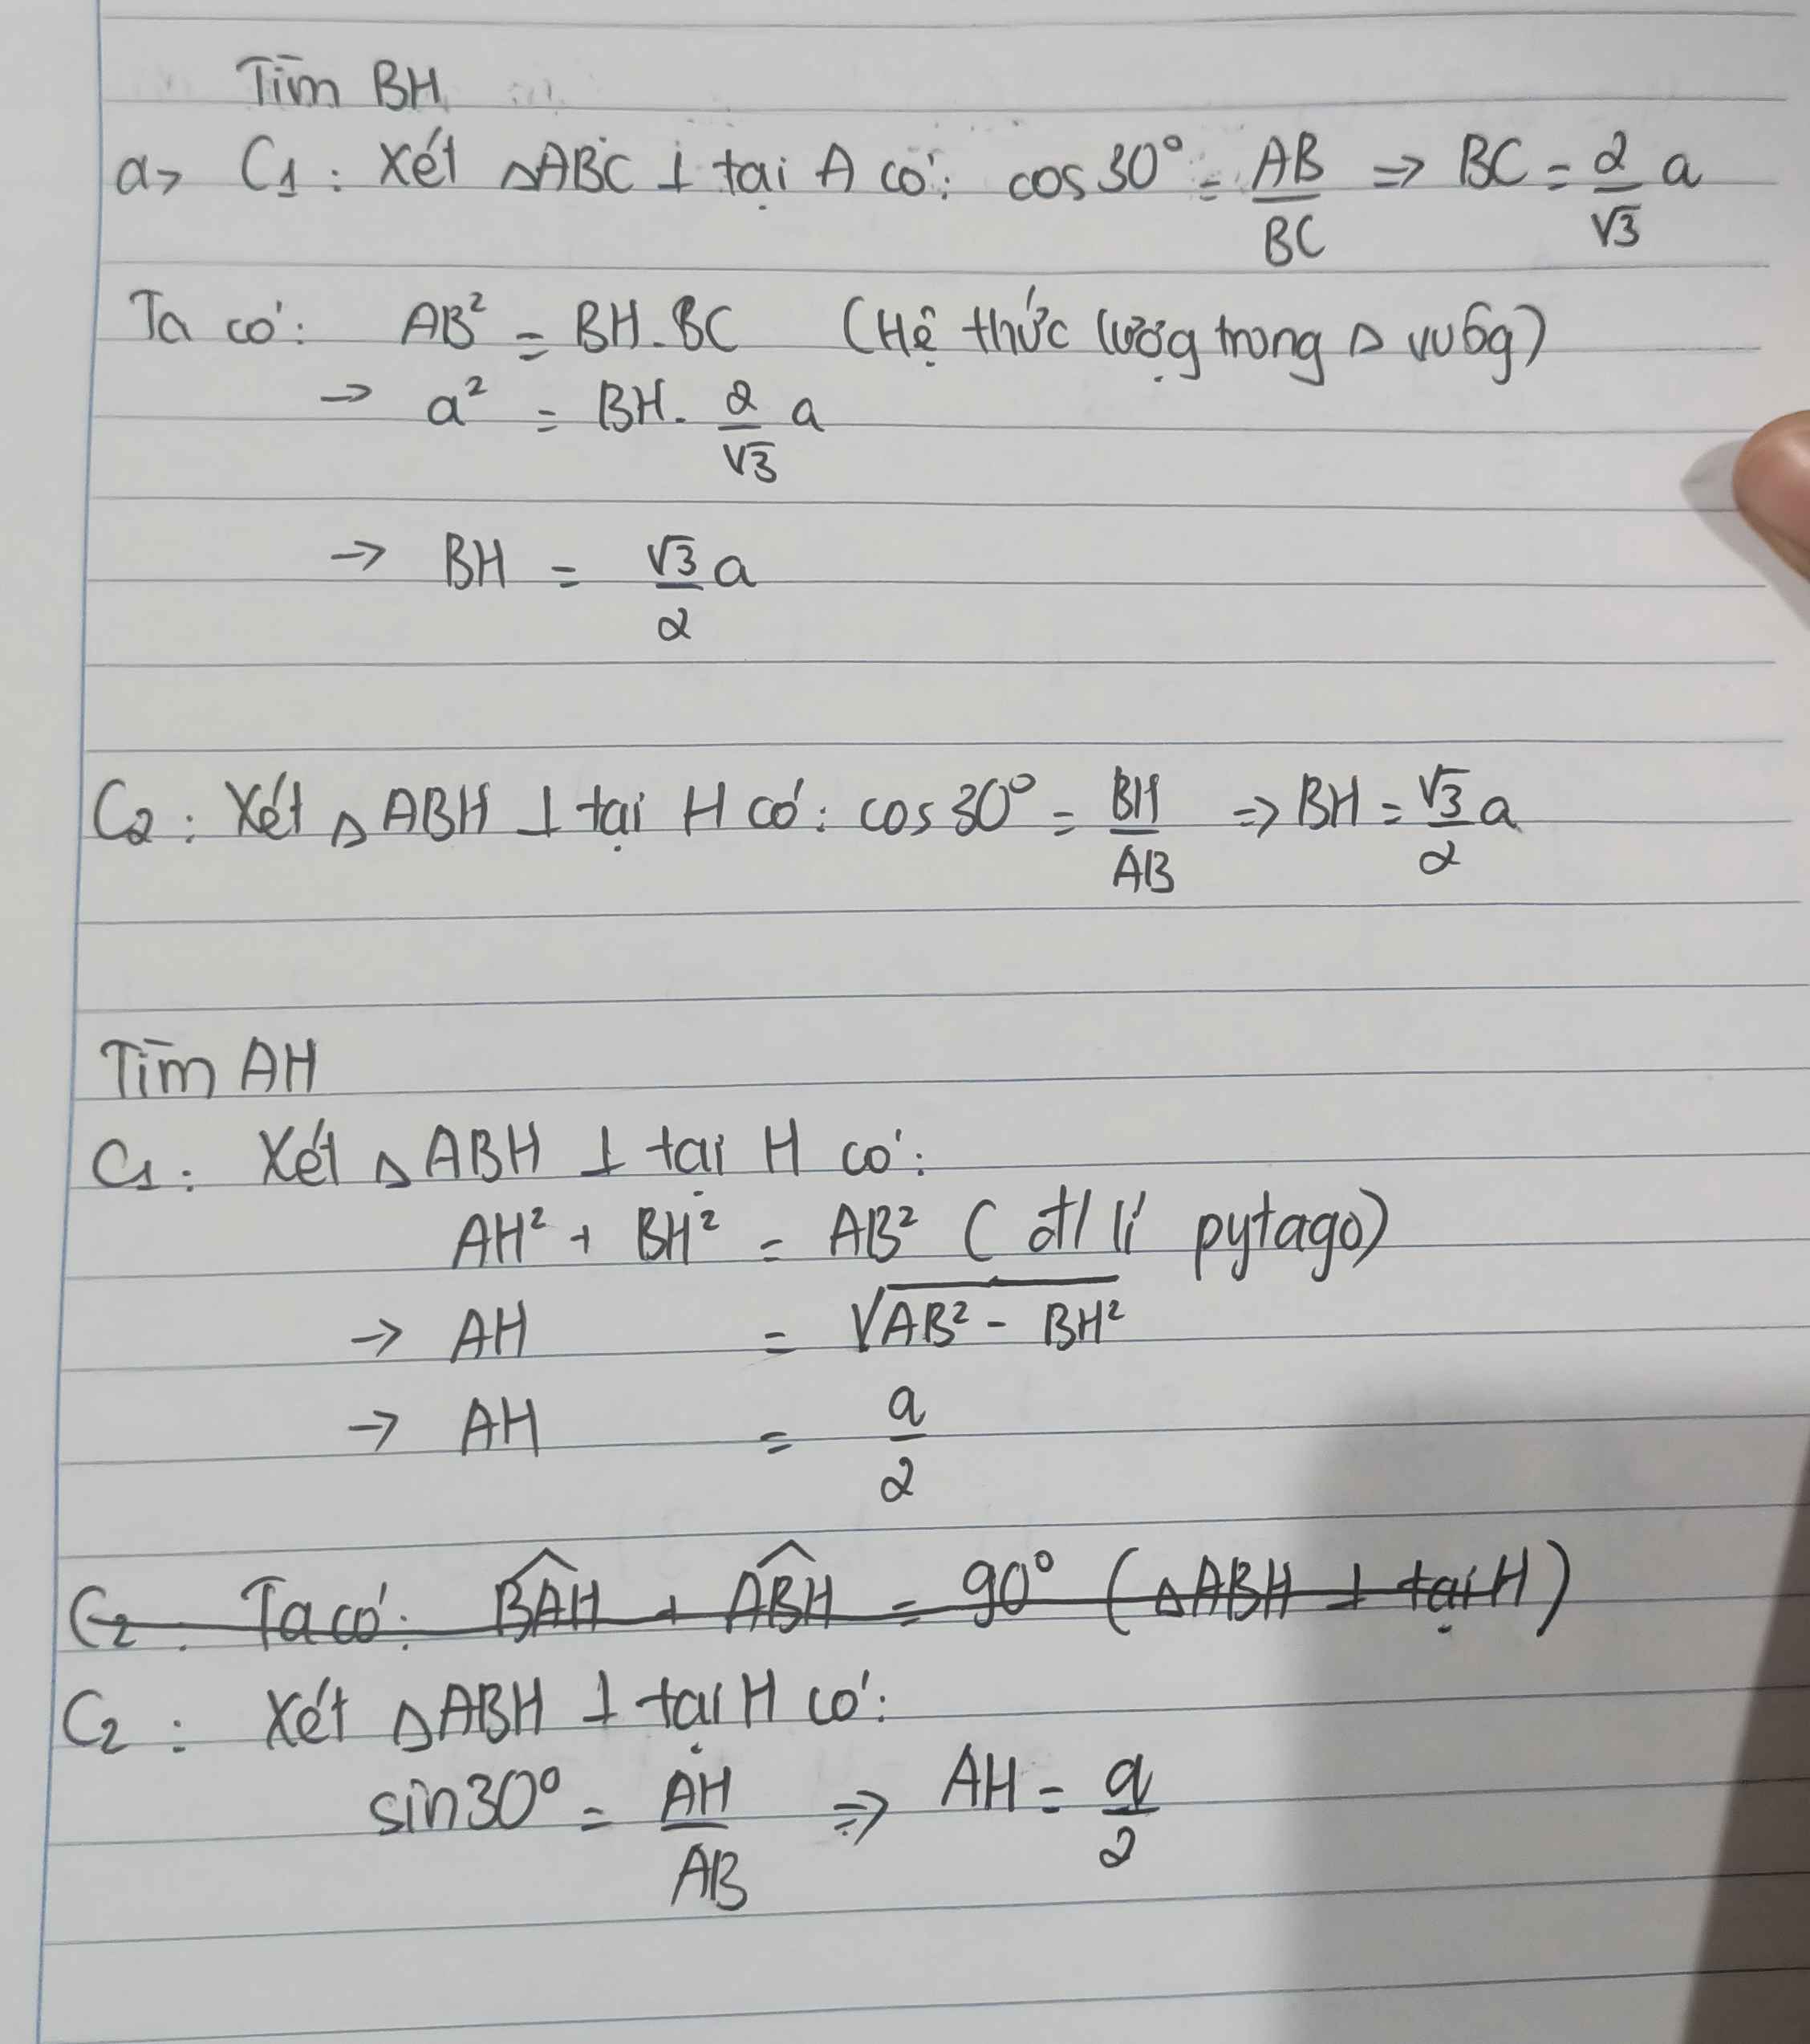 Tìm BH
a> C1: Xét ΔABC ⊥ tại A có: cos 30° = AB/BC => BC = 2/√3 a
Ta có: AB² = BH.BC (Hệ thức lượg trong Δ vuôg)
→ a² = BH. 2/√3 a
→ BH = √3/2 a
C2: Xét ΔABH ⊥ tại H có: cos 30° = BH/AB => BH = √3/2 a
Tìm AH
C1: Xét ΔABH ⊥ tại H có:
AH² + BH² = AB² (đ/lí pytago)
→ AH = √(AB² - BH²)
→ AH = a/2
C2: Ta có: BAH + ABH = 90° (ΔABH ⊥ tại H)
C2: Xét ΔABH ⊥ tại H có:
sin30° = AH/AB => AH = a/2